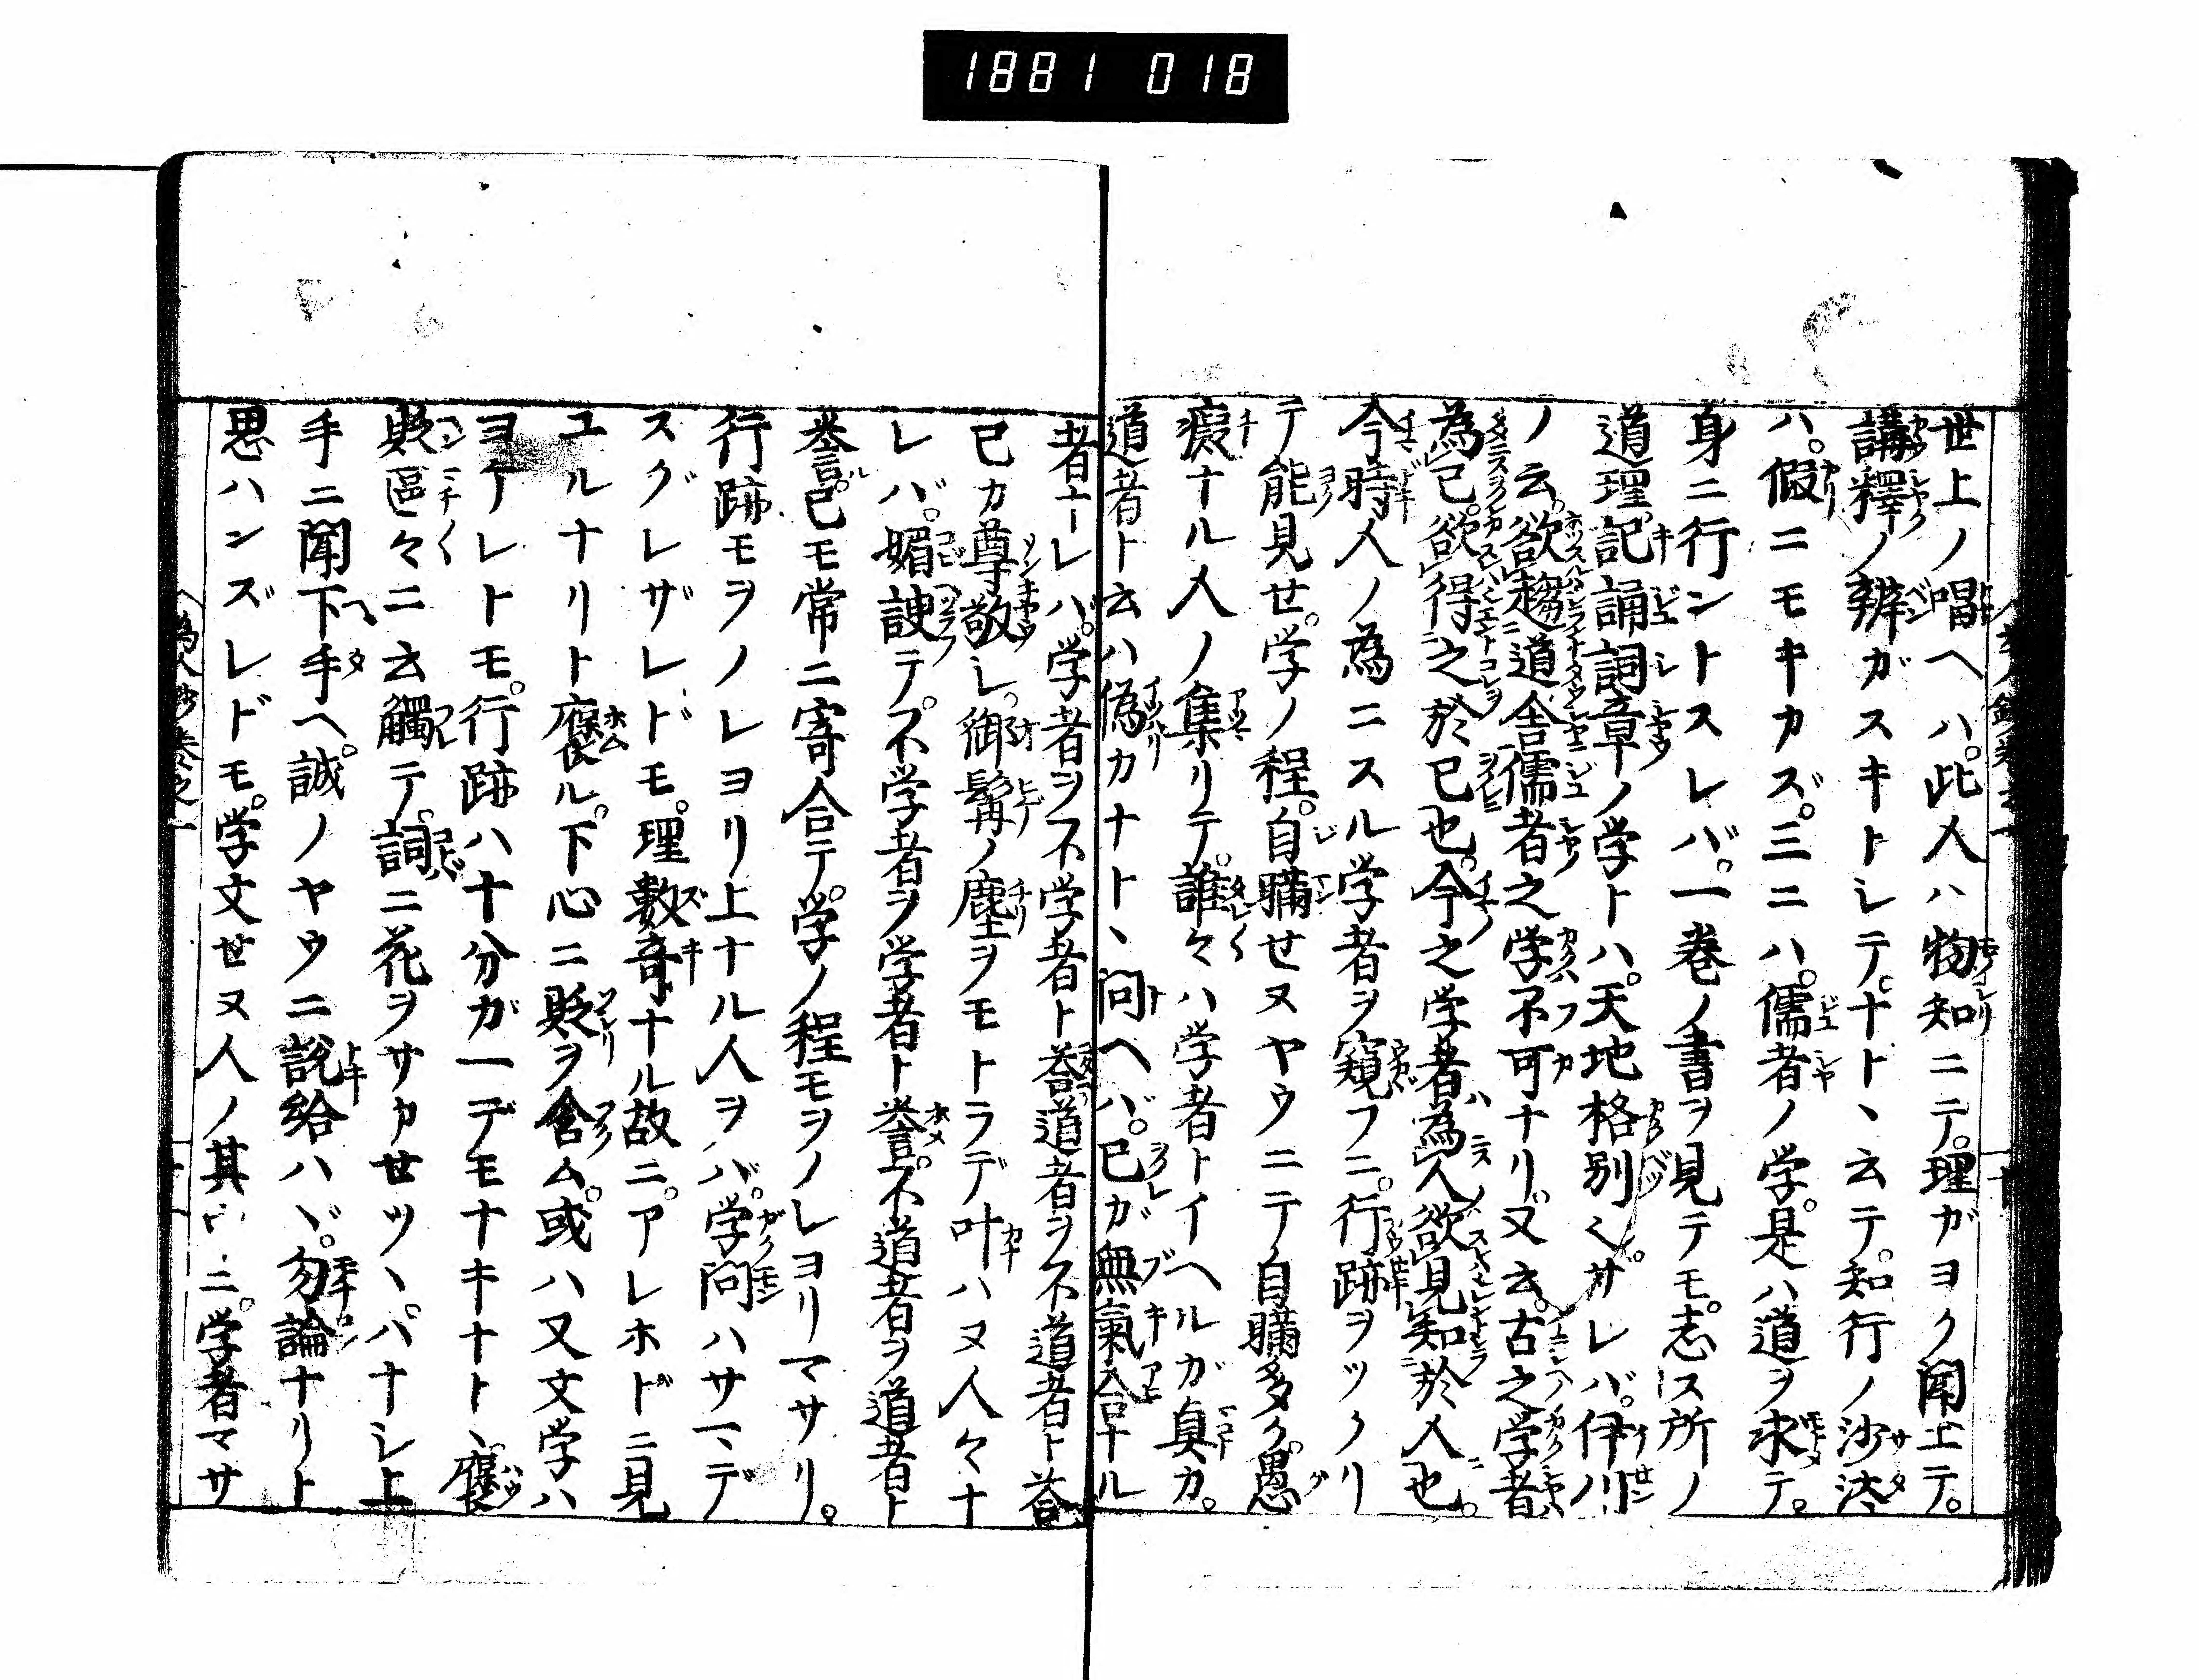 1881 018
世上ノ唱ヘハ。此人ハ物知ニテ。理ガヨク聞エテ。
講釋ノ辨ガスキトレテ。ナト、云テ。知行ノ沙汰
ハ。假ニモキカズ。三ニハ。儒者ノ学。是ハ道ヲ求テ。
身ニ行ントスレバ。一巻ノ書ヲ見テモ。志ス所ノ
道理。記誦詞章ノ学トハ。天地格別〱。サレバ。伊川
ノ云。欲趨道舎儒者之学不可ナリ。又云。古之学者
為己。欲得之於己也。今之学者為人欲見知於人也。
今時人ノ為ニスル学者ヲ窺フニ。行跡ヲツクリ
テ能見せ。学ノ程。自瞞せヌヤウニテ自瞞多ク。愚
癡ナル人ノ集リテ。誰々ハ学者トイヘルガ真カ。
道者ト云ハ偽カナト、問ヘバ。己ガ無氣合ナル
者ナレバ。学者ヲ不学者ト荅。道者ヲ不道者ト荅。
己カ尊敬シ。御髯ノ塵ヲモトラデ叶ハヌ人々ナ
レバ。媚諛テ。不学者ヲ学者ト誉。不道者ヲ道者ト
誉。己モ常ニ寄合テ。学ノ程モヲノレヨリマサリ。
行跡モヲノレヨリ上ナル人ヲバ。学問ハサマデ
スグレザレドモ。理數竒ナル故ニ。アレホドニ見
ユルナリト褒ル。下心ニ貶ヲ含ム。或ハ又文学ハ
ヨケレトモ。行跡ハ十分ガ一デモナキナト、褒
貶區々ニ云觸テ。詞ニ花ヲサカせツ、。ハナシ上
手ニ聞下手ヘ。誠ノヤウニ説給ハヾ。勿論ナリト
思ハンズレドモ。学文せヌ人ノ其ニ。学者マサ
為人鈔巻之一
十